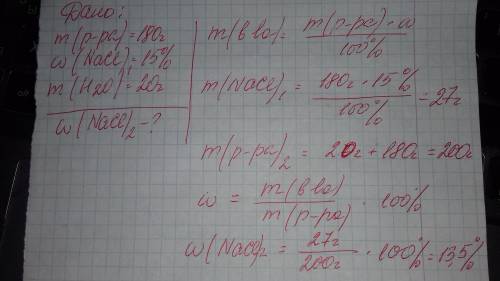 Дано:
m(р-ра)=180г
ω(NaCl)₁=15%
m(H2O)=20г
ω(NaCl)₂-?
m(в ва)= m(р-ра)·ω / 100%
m(NaCl)₁ = 180г·15% / 100% = 27г
m(р-ра)₂ = 20г+180г=200г
ω = m(в ва) / m(р-ра) · 100%
ω(NaCl)2 = 27г / 200г · 100% = 13,5%